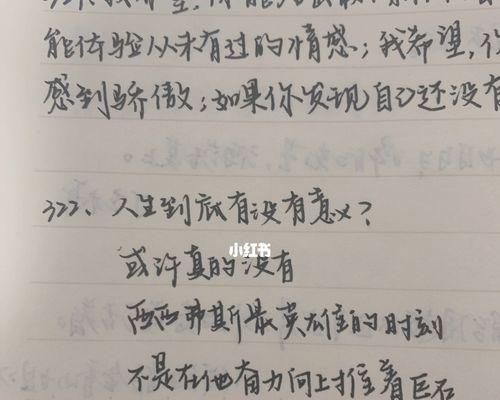 能体验从未有过的情感；我希望，你
感到骄傲；如果你发现自己还没有
322、人生到底有没有意义？
小红书
或许真的没有
西西弗斯最英雄的时刻
不是在他奋力向上推着巨石